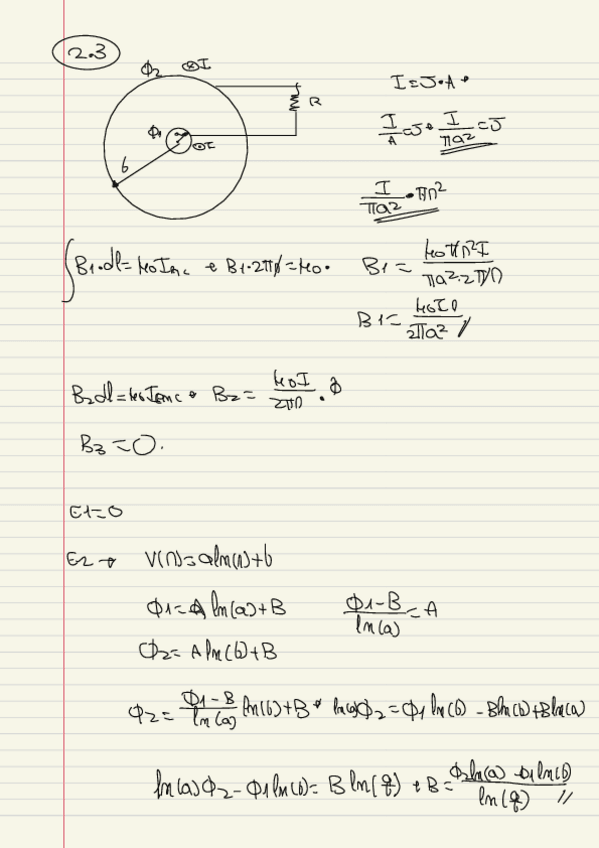 2.3
Φ2 ⊗I
R
Φ1
⊙I
b
I = J·A →
I/A = J → I/πa² = J
I/πa² · πr²
∫B1·dl = μ0 Ienc → B1·2πr = μ0·
B1 = μ0πr²I/πa²·2πr
B1 = μ0Ir/2πa² //
B2dl = μ0Ienc → B2 = μ0I/2πr · φ̂
B3 = 0.
E1=0
E2 → V(r)=aln(r)+b
Φ1 = A ln(a)+B
Φ1-B/ln(a) = A
Φ2 = A ln(b)+B
Φ2 = Φ1-B/ln(a) ln(b)+B → ln(a)Φ2 = Φ1 ln(b) - Bln(b)+Bln(a)
ln(a)Φ2-Φ1ln(b) = B ln(a/b) → B = Φ2ln(a)-Φ1ln(b)/ln(a/b) //